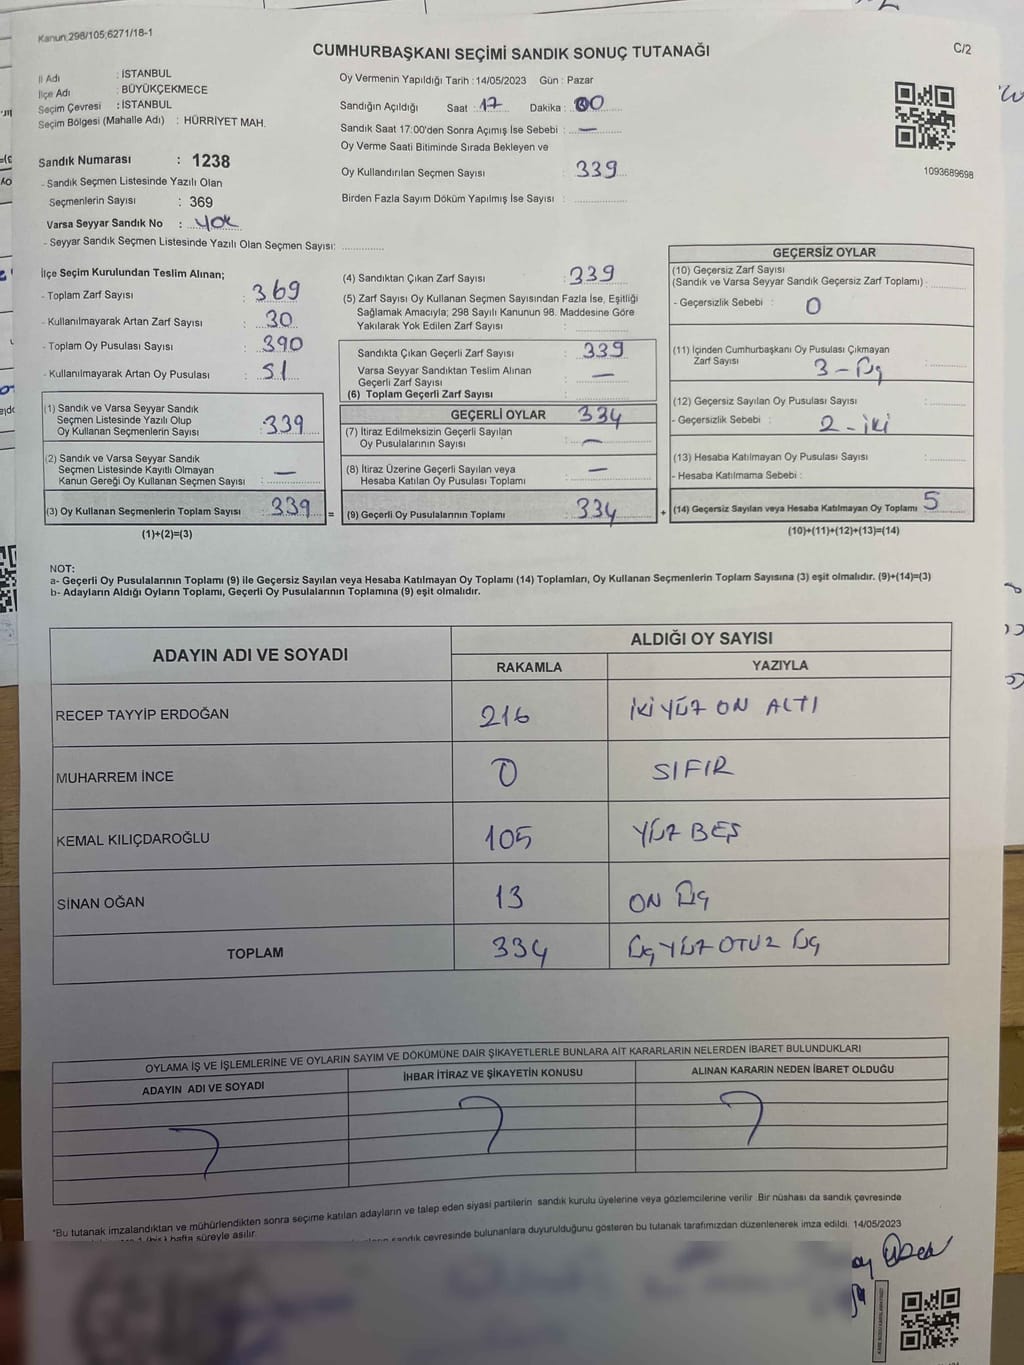 Kanun:298/105;6271/18-1
CUMHURBAŞKANI SEÇİMİ SANDIK SONUÇ TUTANAĞI
C/2
İl Adı : İSTANBUL
İlçe Adı : BÜYÜKÇEKMECE
Seçim Çevresi : İSTANBUL
Seçim Bölgesi (Mahalle Adı) : HÜRRİYET MAH.
Sandık Numarası : 1238
- Sandık Seçmen Listesinde Yazılı Olan
Seçmenlerin Sayısı : 369
Varsa Seyyar Sandık No : YOK
- Seyyar Sandık Seçmen Listesinde Yazılı Olan Seçmen Sayısı:
Oy Vermenin Yapıldığı Tarih : 14/05/2023 Gün : Pazar
Sandığın Açıldığı Saat : 17 Dakika : 00
Sandık Saat 17:00'den Sonra Açımış İse Sebebi : —
Oy Verme Saati Bitiminde Sırada Bekleyen ve
Oy Kullandırılan Seçmen Sayısı : 339
Birden Fazla Sayım Döküm Yapılmış İse Sayısı :
1093689698
İlçe Seçim Kurulundan Teslim Alınan;
- Toplam Zarf Sayısı : 369
- Kullanılmayarak Artan Zarf Sayısı : 30
- Toplam Oy Pusulası Sayısı : 390
- Kullanılmayarak Artan Oy Pusulası : 51
(1) Sandık ve Varsa Seyyar Sandık
Seçmen Listesinde Yazılı Olup
Oy Kullanan Seçmenlerin Sayısı : 339
(2) Sandık ve Varsa Seyyar Sandık
Seçmen Listesinde Kayıtlı Olmayan
Kanun Gereği Oy Kullanan Seçmen Sayısı : —
(3) Oy Kullanan Seçmenlerin Toplam Sayısı : 339 =
(1)+(2)=(3)
(4) Sandıktan Çıkan Zarf Sayısı : 339
(5) Zarf Sayısı Oy Kullanan Seçmen Sayısından Fazla İse, Eşitliği
Sağlamak Amacıyla; 298 Sayılı Kanunun 98. Maddesine Göre
Yakılarak Yok Edilen Zarf Sayısı :
Sandıkta Çıkan Geçerli Zarf Sayısı : 339
Varsa Seyyar Sandıktan Teslim Alınan
Geçerli Zarf Sayısı : —
(6) Toplam Geçerli Zarf Sayısı :
GEÇERLİ OYLAR 334
(7) İtiraz Edilmeksizin Geçerli Sayılan
Oy Pusulalarının Sayısı : —
(8) İtiraz Üzerine Geçerli Sayılan veya
Hesaba Katılan Oy Pusulası Toplamı : —
(9) Geçerli Oy Pusulalarının Toplamı : 334 +
GEÇERSİZ OYLAR
(10) Geçersiz Zarf Sayısı
(Sandık ve Varsa Seyyar Sandık Geçersiz Zarf Toplamı) :
- Geçersizlik Sebebi : 0
(11) İçinden Cumhurbaşkanı Oy Pusulası Çıkmayan
Zarf Sayısı : 3 - Üç
(12) Geçersiz Sayılan Oy Pusulası Sayısı :
- Geçersizlik Sebebi : 2 - iki
(13) Hesaba Katılmayan Oy Pusulası Sayısı :
- Hesaba Katılmama Sebebi :
(14) Geçersiz Sayılan veya Hesaba Katılmayan Oy Toplamı 5
(10)+(11)+(12)+(13)=(14)
NOT:
a- Geçerli Oy Pusulalarının Toplamı (9) ile Geçersiz Sayılan veya Hesaba Katılmayan Oy Toplamı (14) Toplamları, Oy Kullanan Seçmenlerin Toplam Sayısına (3) eşit olmalıdır. (9)+(14)=(3)
b- Adayların Aldığı Oyların Toplamı, Geçerli Oy Pusulalarının Toplamına (9) eşit olmalıdır.
ADAYIN ADI VE SOYADI
ALDIĞI OY SAYISI
RAKAMLA YAZIYLA
RECEP TAYYİP ERDOĞAN 216 İKİ YÜZ ON ALTI
MUHARREM İNCE 0 SIFIR
KEMAL KILIÇDAROĞLU 105 YÜZ BEŞ
SİNAN OĞAN 13 ON Üç
TOPLAM 334 Üç YÜZ OTUZ Üç
OYLAMA İŞ VE İŞLEMLERİNE VE OYLARIN SAYIM VE DÖKÜMÜNE DAİR ŞİKAYETLERLE BUNLARA AİT KARARLARIN NELERDEN İBARET BULUNDUKLARI
ADAYIN ADI VE SOYADI İHBAR İTİRAZ VE ŞİKAYETİN KONUSU ALINAN KARARIN NEDEN İBARET OLDUĞU
*Bu tutanak imzalandıktan ve mühürlendikten sonra seçime katılan adayların ve talep eden siyasi partilerin sandık kurulu üyelerine veya gözlemcilerine verilir. Bir nüshası da sandık çevresinde
hafta süreyle asılır.
sandık çevresinde bulunanlara duyurulduğunu gösteren bu tutanak tarafımızdan düzenlenerek imza edildi. 14/05/2023